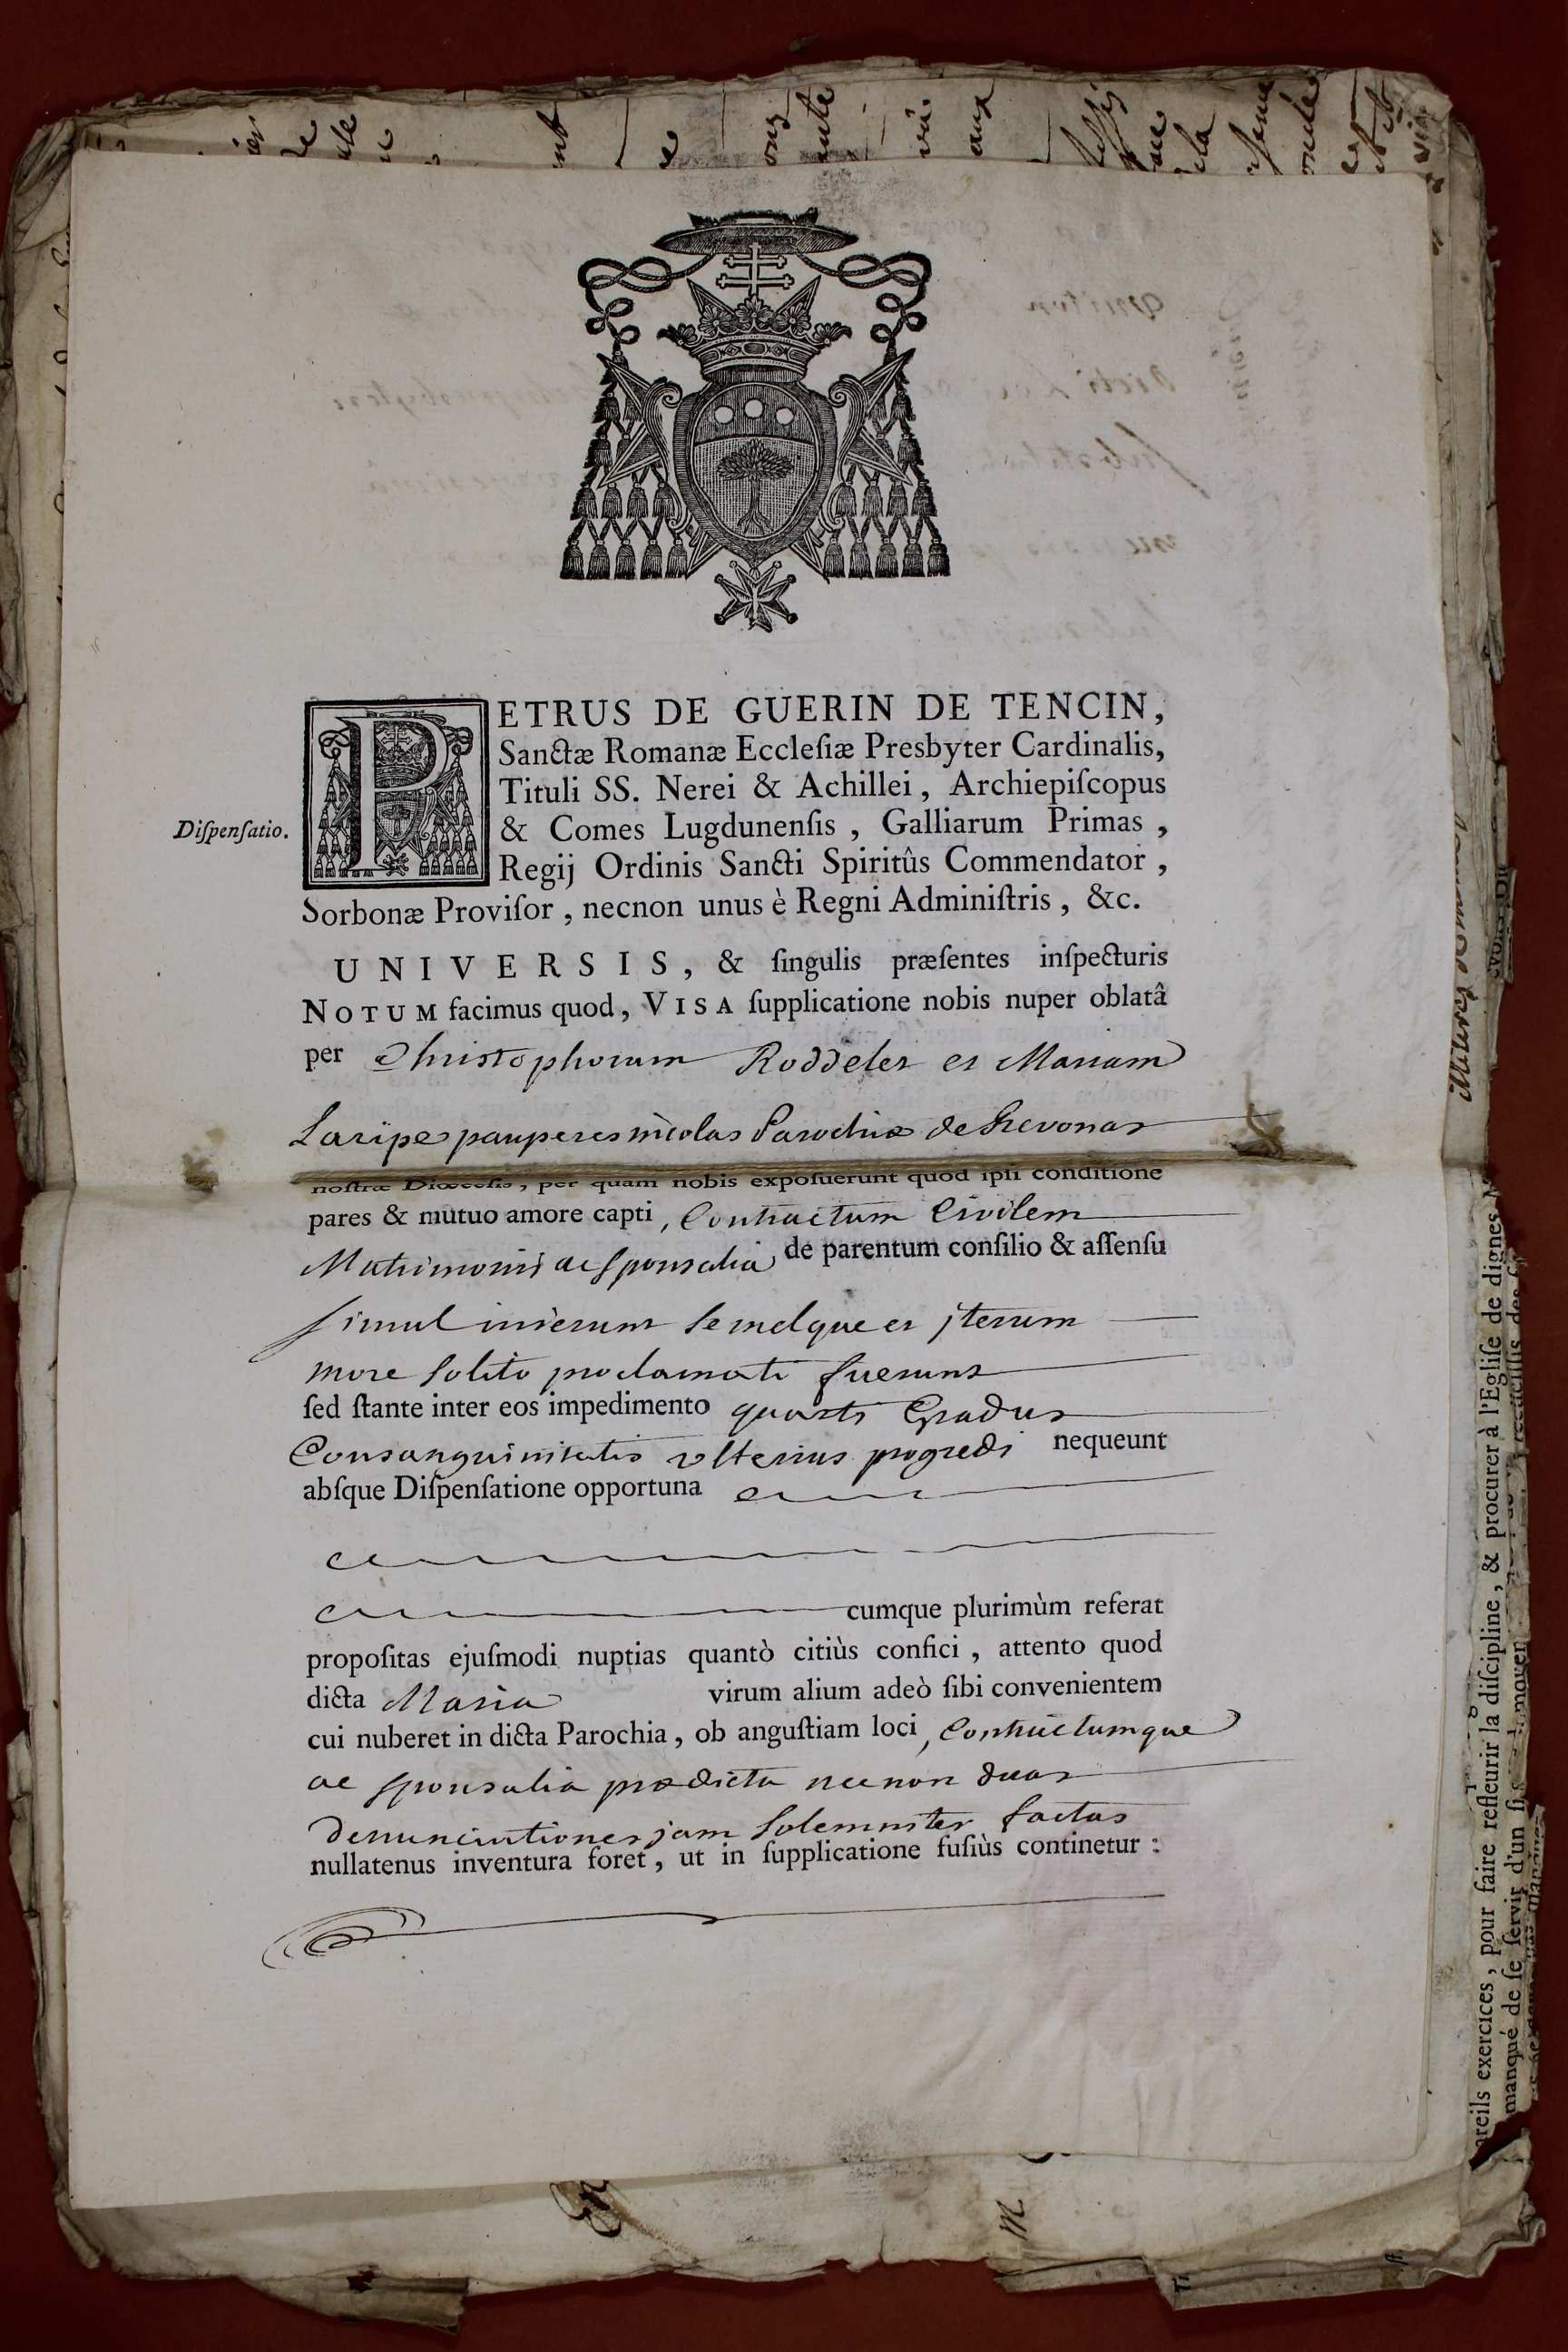 Diſpenſatio.
PETRUS DE GUERIN DE TENCIN,
Sanctæ Romanæ Eccleſiæ Presbyter Cardinalis,
Tituli SS. Nerei & Achillei, Archiepiſcopus
& Comes Lugdunenſis, Galliarum Primas,
Regij Ordinis Sancti Spiritûs Commendator,
Sorbonæ Proviſor, necnon unus è Regni Adminiſtris, &c.
UNIVERSIS, & ſingulis præſentes inſpecturis
NOTUM facimus quod, VISA ſupplicatione nobis nuper oblatâ
per Christophorum Roddeler et Mariam
Laripe pauperes incolas Parochiæ de
noſtræ Diœceſis, per quam nobis expoſuerunt quod ipſi conditione
pares & mutuo amore capti, Contractum Civilem
Matrimonii ac sponsalia de parentum conſilio & aſſenſu
simul inierunt semelque et jterum
more solito proclamati fuerunt
ſed ſtante inter eos impedimento quarti Gradus
Consanguinitatis vlterius progredi nequeunt
abſque Diſpenſatione opportuna
cumque plurimùm referat
propoſitas ejuſmodi nuptias quantò citiùs confici, attento quod
dicta Maria virum alium adeò ſibi convenientem
cui nuberet in dicta Parochia, ob anguſtiam loci, Contractumque
ac sponsalia prædicta necnon duas
denunciationes jam solemniter factas
nullatenus inventura foret, ut in ſupplicatione fuſiùs continetur :
areils exercices, pour faire refleurir la diſcipline, & procurer à l'Egliſe de dignes
manqué de ſe ſervir d'un